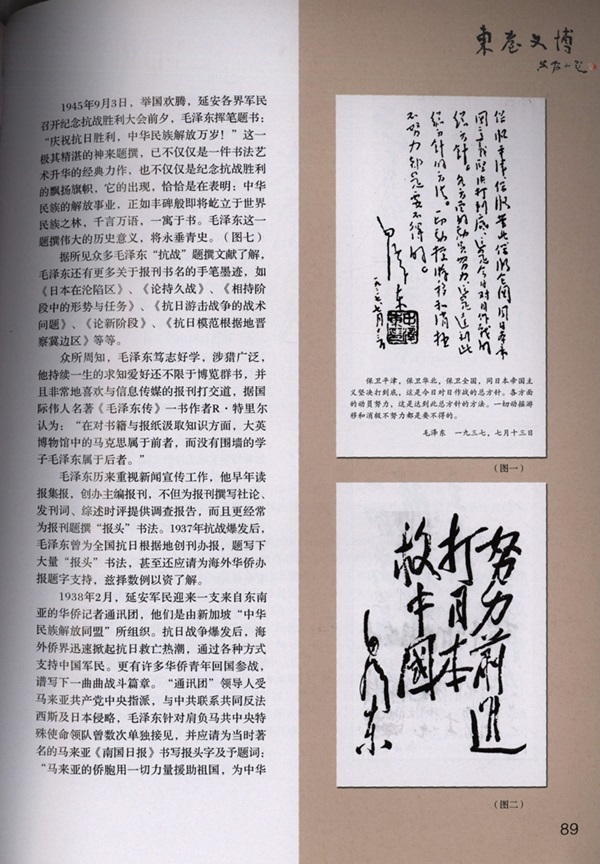 東莞文博
1945年9月3日，举国欢腾，延安各界军民
召开纪念抗战胜利大会前夕，毛泽东挥笔题书：
“庆祝抗日胜利，中华民族解放万岁！”这一
极其精湛的神来题撰，已不仅仅是一件书法艺
术升华的经典力作，也不仅仅是纪念抗战胜利
的飘扬旗帜，它的出现，恰恰是在表明：中华
民族的解放事业，正如丰碑般即将屹立于世界
民族之林，千言万语，一寓于书。毛泽东这一
题撰伟大的历史意义，将永垂青史。（图七）
据所见众多毛泽东“抗战”题撰文献了解，
毛泽东还有更多关于报刊书名的手笔墨迹，如
《日本在沦陷区》、《论持久战》、《相持阶
段中的形势与任务》、《抗日游击战争的战术
问题》、《论新阶段》、《抗日模范根据地晋
察冀边区》等等。
众所周知，毛泽东笃志好学，涉猎广泛，
他持续一生的求知爱好还不限于博览群书，并
且非常地喜欢与信息传媒的报刊打交道，据国
际伟人名著《毛泽东传》一书作者R·特里尔
认为：“在对书籍与报纸汲取知识方面，大英
博物馆中的马克思属于前者，而没有围墙的学
子毛泽东属于后者。”
毛泽东历来重视新闻宣传工作，他早年读
报集报，创办主编报刊，不但为报刊撰写社论、
发刊词、综述时评提供调查报告，而且更经常
为报刊题撰“报头”书法。1937年抗战爆发后，
毛泽东曾为全国抗日根据地创刊办报，题写下
大量“报头”书法，甚至还应请为海外华侨办
报题字支持，兹择数例以资了解。
1938年2月，延安军民迎来一支来自东南
亚的华侨记者通讯团，他们是由新加坡“中华
民族解放同盟”所组织。抗日战争爆发后，海
外侨界迅速掀起抗日救亡热潮，通过各种方式
支持中国军民。更有许多华侨青年回国参战，
谱写下一曲曲战斗篇章。“通讯团”领导人受
马来亚共产党中央指派，与中共联系共同反法
西斯及日本侵略，毛泽东针对肩负马共中央特
殊使命领队曾数次单独接见，并应请为当时著
名的马来亚《南国日报》书写报头字及予题词：
“马来亚的侨胞用一切力量援助祖国，为中华
保卫平津，保卫华北，保卫全国，同日本帝国主
义坚决打到底，这是今日对日作战的总方针。各方面
的动员努力，这是达到此总方针的方法。一切动摇游
移和消极不努力都是要不得的。
毛泽东 一九三七，七月十三日
（图一）
努力前進
打日本
救中國
毛泽东
（图二）
89